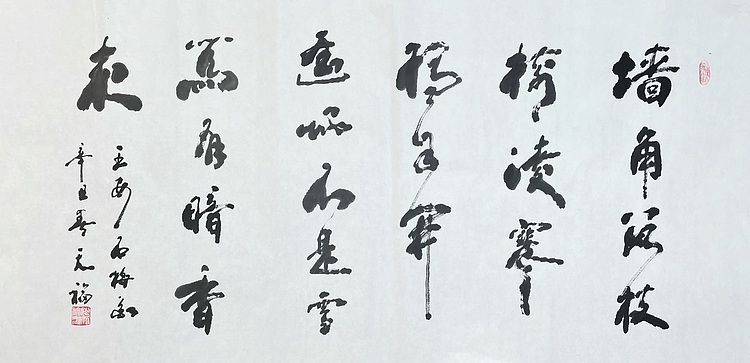 墙角数枝
梅凌寒
独自開
遥知不是雪
為有暗香
来
王安石梅花
辛丑春